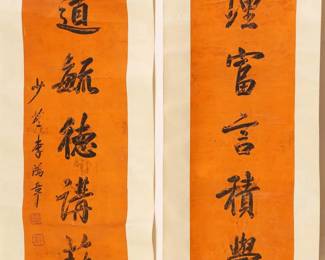 理富言積學
道毓德講藝
少荃李鴻章